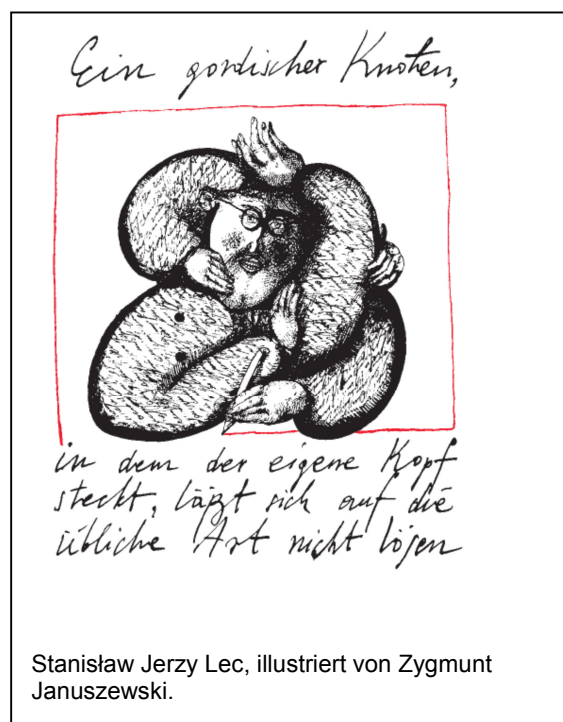 Ein gordischer Knoten,
in dem der eigene Kopf
steckt, läßt sich auf die
übliche Art nicht lösen
Stanisław Jerzy Lec, illustriert von Zygmunt
Januszewski.